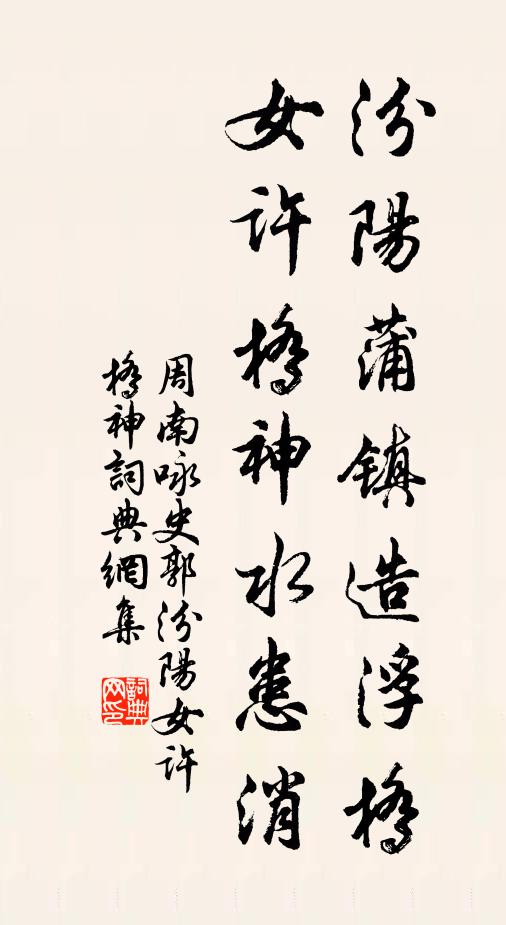 汾陽蒲鎮造浮橋
女許橋神水患消
周南咏史郭汾陽女許
橋神詞典網集
詞典网印